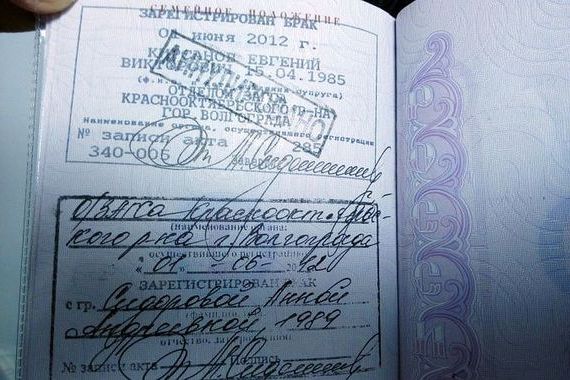 СЕМЕЙНОЕ ПОЛОЖЕНИЕ
ЗАРЕГИСТРИРОВАН БРАК
01 июня 2012 г.
ЕВГЕНИЙ
15.04.1985
ОТДЕЛОМ
КРАСНООКТЯБРЬСКОГО Р-НА
ГОР. ВОЛГОГРАДА
Наименование органа, осуществившего регистрацию
№ записи акта 285
340-006
о/ЗАГСа Красноокт.
кого р-на г. Волгограда
(наименование органа:
осуществившего регистрацию)
"01" - 06 - 2012
ЗАРЕГИСТРИРОВАН БРАК
с гр. Сидоровой Анной
Андреевной, 1989
отчество, дата
№ записи акта Подпись